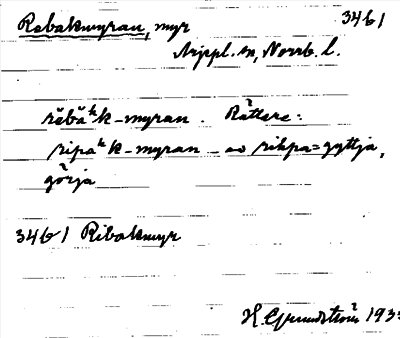 Rebakmyran, myr 3461
Arjepl. sn, Norrb. l.
rĕbăᵏk-myran. Rättare:
ripaᵏk-myran – av rihpa = gyttja,
görja
3461 Ribakmyr
H. Grundström 193